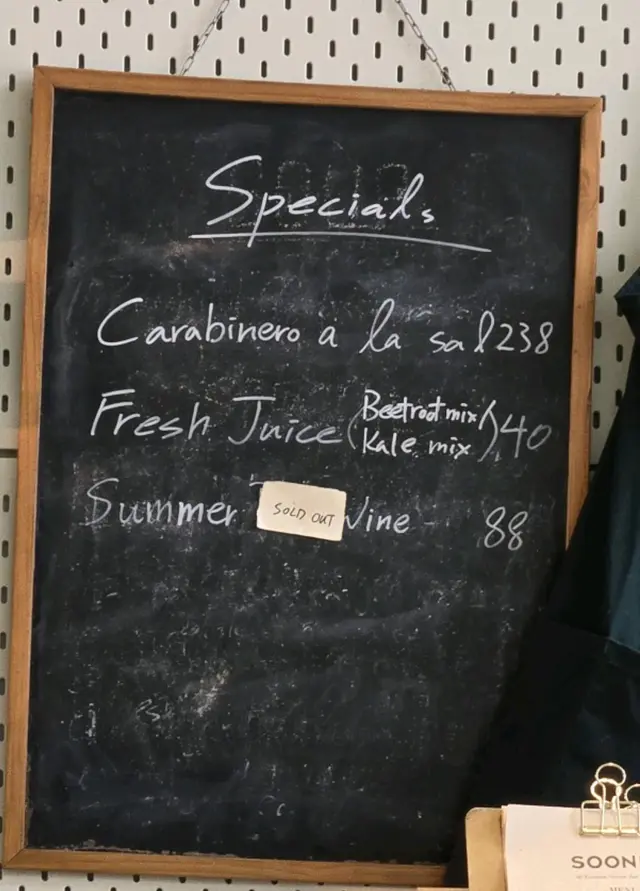 Specials
Carabinero a la sal 238
Fresh Juice (Beetroot mix
Kale mix) 40
Summer SOLD OUT Wine 88
SOON